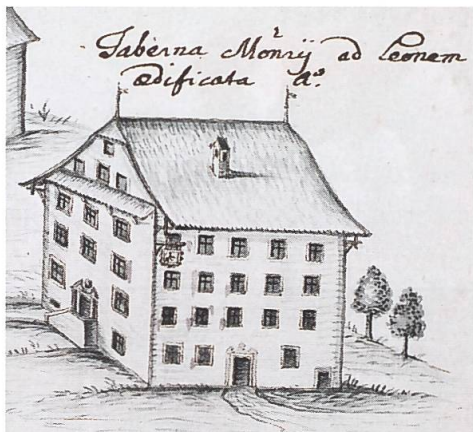 Taberna Mon̄rij ad Leonem
ædificata Aº.